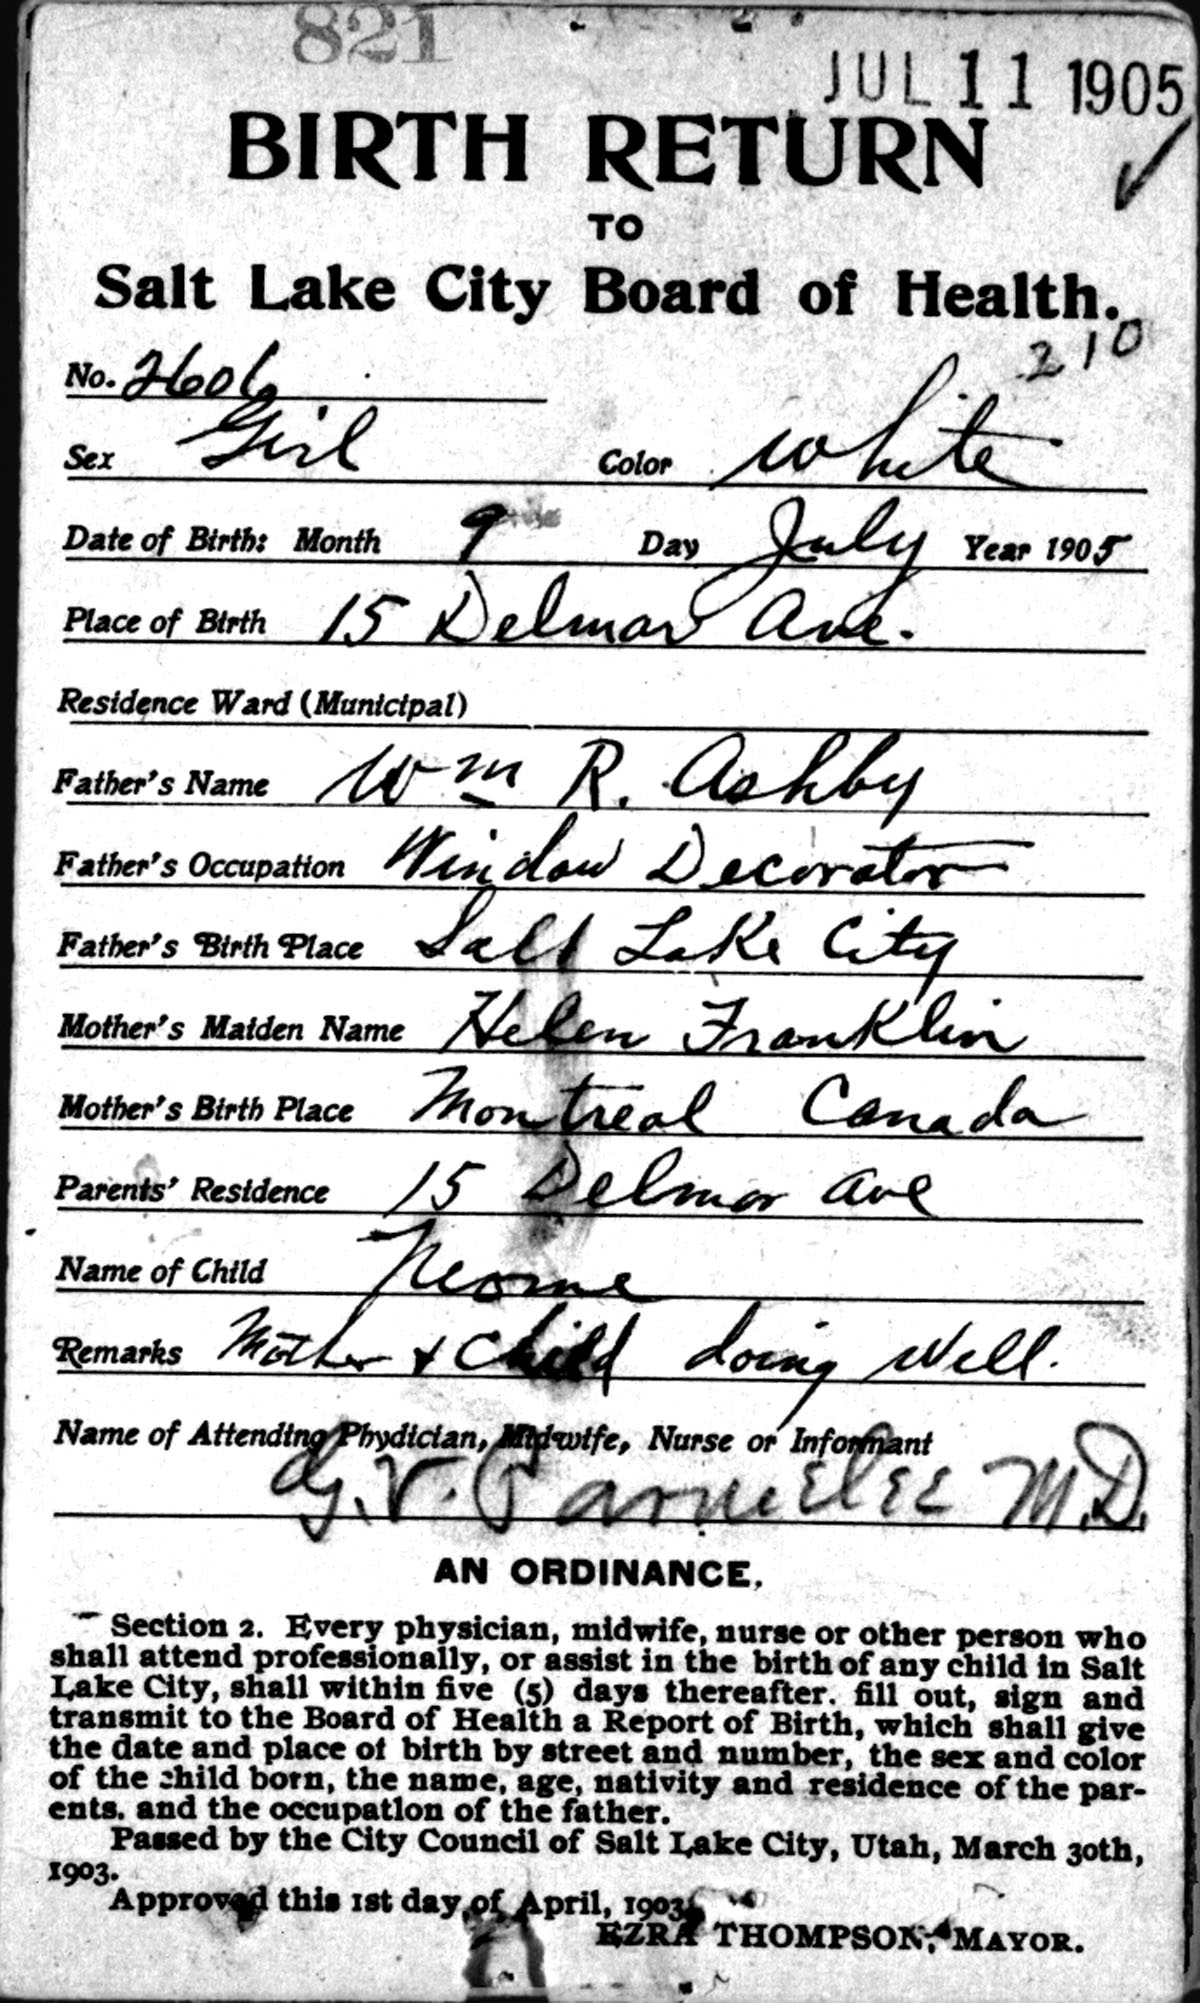 821
JUL 11 1905
BIRTH RETURN
TO
Salt Lake City Board of Health.
210
No. 2606
Sex Girl Color White
Date of Birth: Month 9 Day July Year 1905
Place of Birth 15 Delmar Ave.
Residence Ward (Municipal)
Father's Name Wm R. Ashby
Father's Occupation Window Decorator
Father's Birth Place Salt Lake City
Mother's Maiden Name Helen Franklin
Mother's Birth Place Montreal Canada
Parents' Residence 15 Delmar Ave
Name of Child Neome
Remarks Mother & Child doing Well.
Name of Attending Phydician, Midwife, Nurse or Informant
G. V. Parmelee M.D.
AN ORDINANCE.
Section 2. Every physician, midwife, nurse or other person who
shall attend professionally, or assist in the birth of any child in Salt
Lake City, shall within five (5) days thereafter. fill out, sign and
transmit to the Board of Health a Report of Birth, which shall give
the date and place of birth by street and number, the sex and color
of the child born, the name, age, nativity and residence of the par-
ents. and the occupation of the father.
Passed by the City Council of Salt Lake City, Utah, March 30th,
1903.
Approved this 1st day of April, 1903.
EZRA THOMPSON, MAYOR.